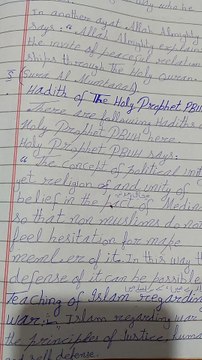 In another ayat Allah Almighty
says: "Allah Almighty explain
the invite of peaceful relation
ships through the Holy Quran
§ (Sura Al Mumtahna)
Hadith of The Holy Prophet PBUH
There are following Hadiths
Holy Prophet PBUH here.
Holy Prophet PBUH says:
" The concept of political unit
yet religion of and unity of
belief in the Pact of Medina
so that non muslims do not
feel hesitation for make
member of it. In this way th
defense of it can be possible
Teaching of Islam regardin
war:- Islam regarding war
the principles of Justice, huma
self defense.